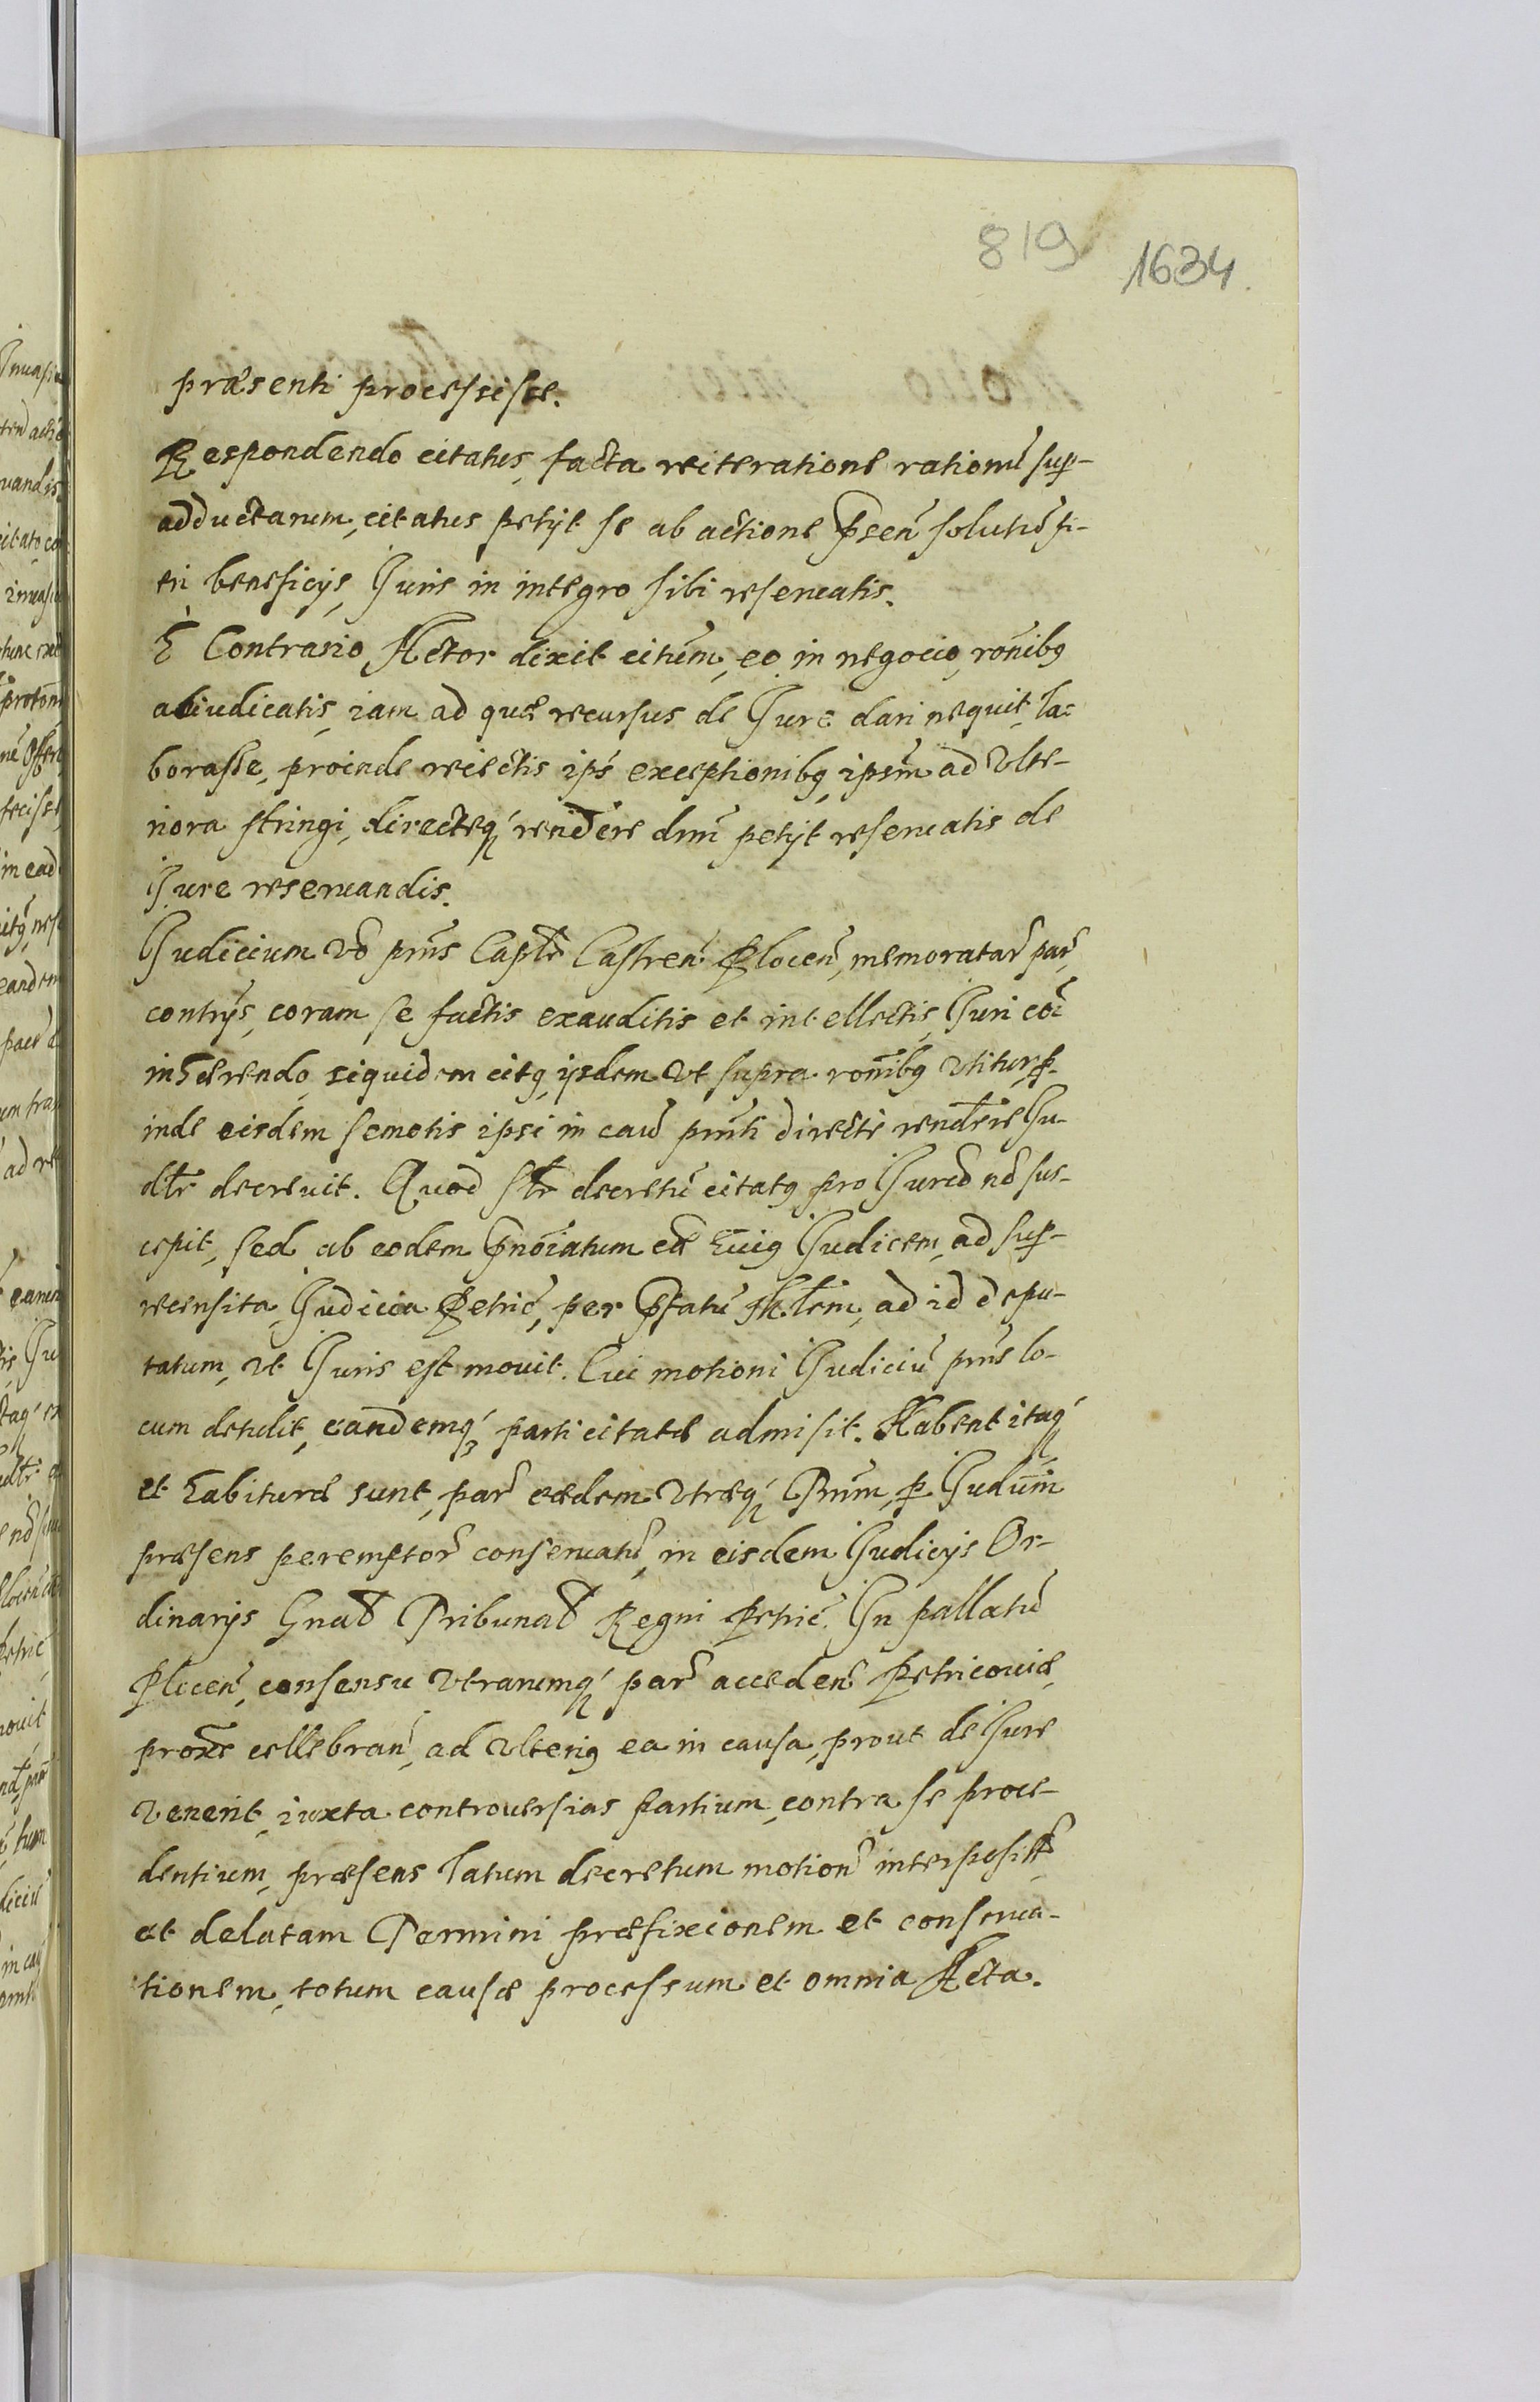 819 1634.
præsenti processisse.
Respondendo citatus, facta reiteratione rationū sup-
adductarum, citatus petijt se ab actione p̄sen̄ solutū fi-
eri beneficijs, Juris in integro sibi reseruatis.
E Contrario Actor dixit citum, eo in negocio, ronibq
abiudicatis, iam ad quæ recursus de Jure dari nequit, la-
borasse, proinde reiectis ips exceptionibq ipsm̄ ad Vlte-
riora stringi, directeq́ rendere dnm̄ petijt reseruatis de
Jure reseruandis.
Judicium Vō pn̄s Captle Castren̄ Plocen̄, memoratar̄ par̄
contrijs, coram se factis exauditis et intellectis, Juri cōi
inhærendo, siquidem citq, ijsdem Vt supra ronibq Vtitur, p-
inde eisdem semotis ipsi in cau͂ pn̄ti directe rendere Ju-
dtr decreuit. Quod Str decretū citatq pro Jureo nō sus-
cepit, sed ab eodem p̄noiatum eā Euiq Judicem, ad sup-
recensita Judicia Petric̄, per p̄fatū Mtlem, ad id depu-
tatum, Vt Juris est mouit. Cui motioni Judiciū pn̄s lo-
cum detulit, eandemq́ parti citatæ admisit. Habent itaq́
et habituræ sunt, par̄ eædem Vtræq́ Trm̄m, p Judum̄
præsens peremptor̄ conseruatū, in eisdem Judicijs Or-
dinarijs Gnal Tribunal Regni Petric̄. In pallatū
Plocen̄, consensu Vtrarumq́ par̄ acceden̄ Petricouiæ,
proxe cellebran̄, ad Vlteriq ea in causa, prout de Jure
Venerit, iuxta controuersias partium, contra se proce-
dentium, præsens latum decretum motion̄ interposit
et delatam Termini præfixionem et conserua-
tionem, totum causæ processum et omnia Acta.